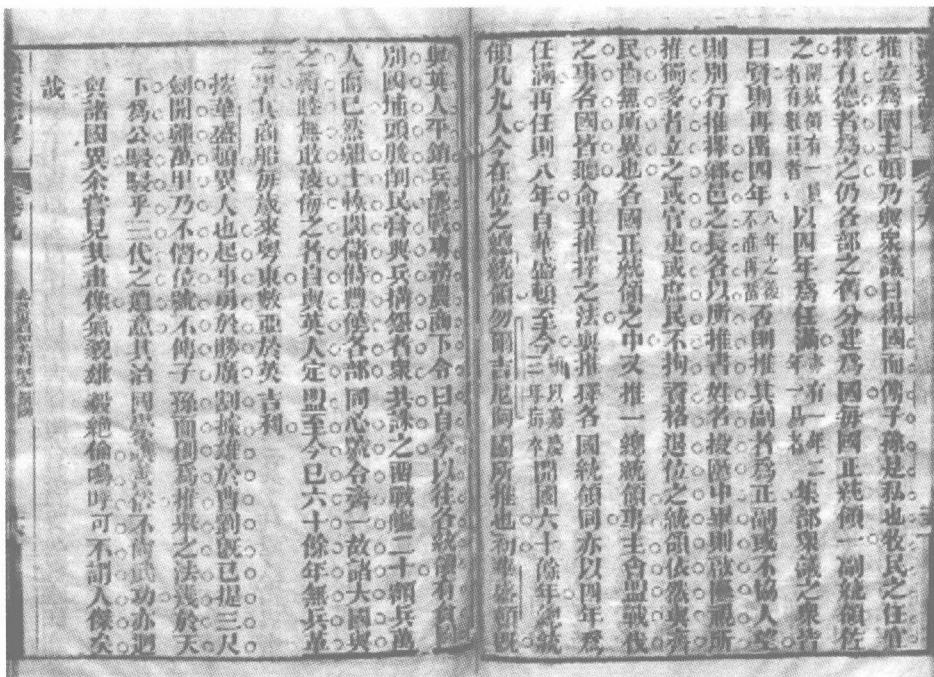 推立爲國主頓乃與衆議曰得國而傳子孫是私也牧民之任宜
擇有德者爲之仍各部之舊分建爲國每國正統領一副統領佐
之副統領有一員者有數員者以四年爲任滿亦有一年二年一易者集部衆議之衆皆
曰賢則再留四年八年之後不准再留否則推其副者爲正副或不協人望
則別行推擇鄉邑之長各以所推書姓名投匭中畢則啟匭視所
推獨多者立之或官吏或庶民不拘資格退位之統領依然與齊
民齒無所異也各國正統領之中又推一總統領專主會盟戰伐
之事各國皆聽命其推擇之法與推擇各國統領同亦以四年爲
任滿再任則八年自華盛頓至今開國六十餘年總統
領凡九人今在位之總統領勿爾吉尼阿國所推也初華盛頓旣
與英人平銷兵罷戰專務農商下令曰自今以往各統領有貪
別國埔頭朘削民膏興兵構怨者衆共誅之留戰艦二十額兵萬
人而已然疆土恢闊儲偫豐饒各部同心號合齊一故諸大國與
之輯睦無敢凌侮之者自與英人定盟至今已六十餘年無兵革
之事其商船每歲來粵東數亞於英吉利
按華盛頓異人也起事勇於勝廣割據雄於曹劉旣已提三尺
劍開疆萬里乃不僭位號不傳子孫而創爲推舉之法幾於天
下爲公駸駸乎三代之遺意其治國崇讓善俗不尚武功亦迥
與諸國異余嘗見其畫像氣貌雄毅絕倫嗚呼可不謂人傑矣
哉